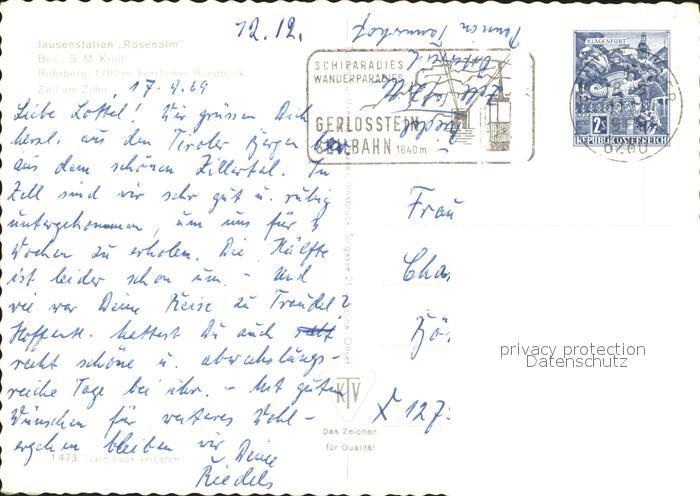 12.12.
Jausenstation „Rosenalm"
Bes.: S. M. Kröll
Rohrberg, 1760 m, herrlicher Rundblick
Zell am Ziller
17.9.69
Liebe Lottel! Wir grüssen Dich
herzl. aus den Tiroler Bergen bzw.
aus dem schönen Zillertal. In
Zell sind wir sehr gut u. ruhig
untergekommen, um uns für 4
Wochen zu erholen. Die Hälfte
ist leider schon um. - Und
wie war Deine Reise zu Traudel?
Hoffentl. hattest Du auch
recht schöne u. abwechslungs-
reiche Tage bei ihr. - Mit guten
Wünschen für weiteres Wohl-
ergehen bleiben wir Deine
Riedels
1473 Nachdruck verboten
SCHIPARADIES
WANDERPARADIES
GERLOSSTEIN
SEILBAHN 1640m
KLAGENFURT
2 S
REPUBLIK ÖSTERREICH
6280
Pension
Österreich
Riedel
Frau
Cha
X 127
KTV
Das Zeichen
für Qualität
privacy protection
Datenschutz